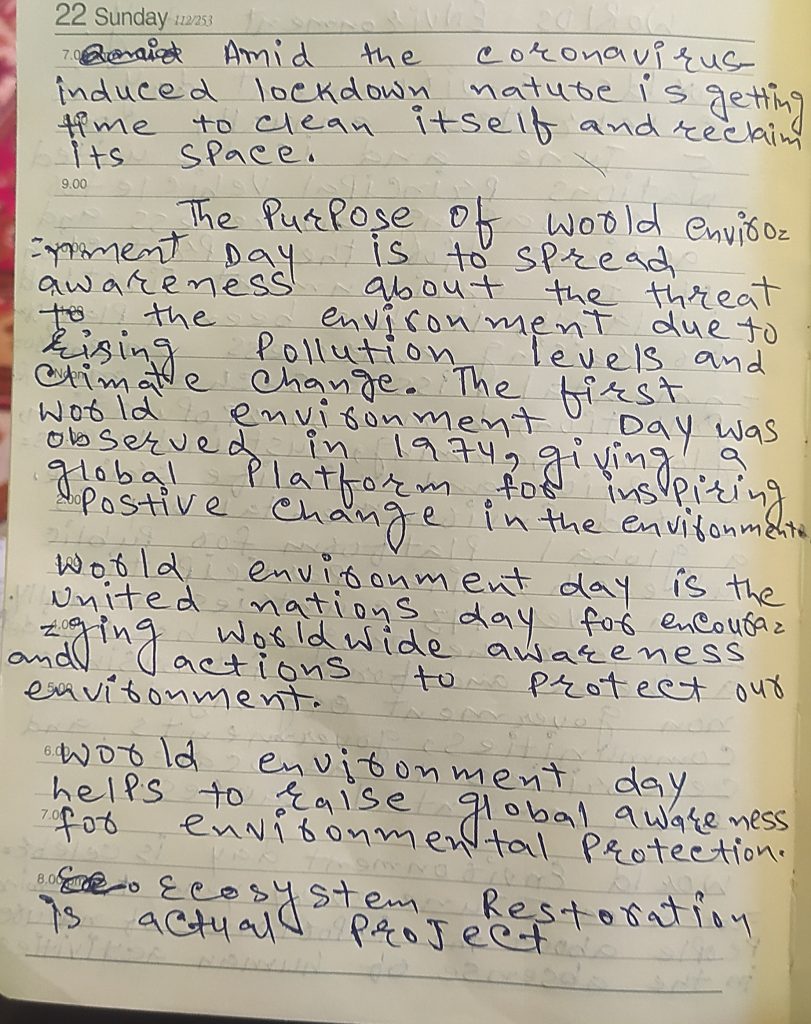 22 Sunday 112/253
7.00 Amid the coronavirus-
induced lockdown nature is getting
time to clean itself and reclaim
its space.
9.00
The Purpose of world enviro-
-nment Day is to spread
awareness about the threat
to the environment due to
rising Pollution levels and
climate change. The first
world environment Day was
observed in 1974, giving a
global Platform for inspiring
2.00 Postive change in the environment.
world environment day is the
united nations day for encoura-
-ging worldwide awareness
and actions to protect our
5.00 environment.
6.00 world environment day
helps to raise global awareness
7.00 for environmental Protection.
8.00 Ecosystem Restoration
is actual Project